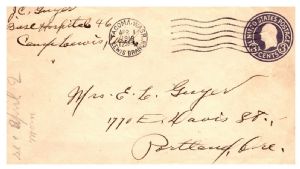 J.C. Guyer
Base Hospital 46
Camp Lewis,
TACOMA, WASH.
APR 1
LEWIS BRANCH
UNITED STATES POSTAGE
3 CENTS 3
Mrs. E. C. Guyer
1770 E. Davis St.,
Portland, Ore.
April 2